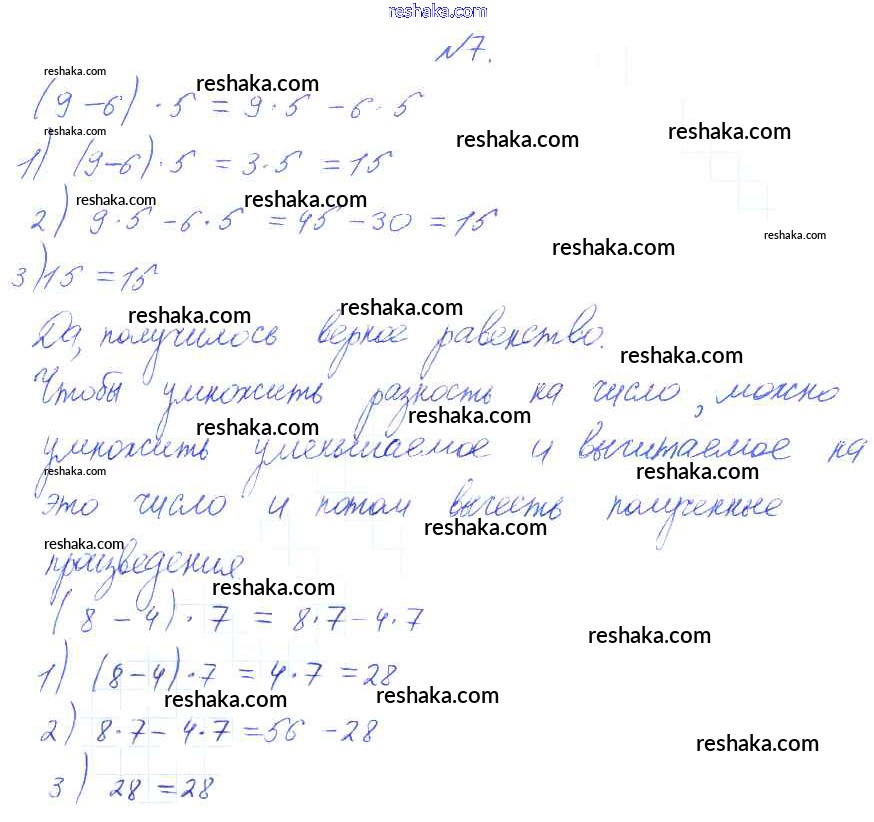 reshaka.com
№7.
reshaka.com reshaka.com
(9-6)·5 = 9·5 - 6·5
reshaka.com reshaka.com reshaka.com
1) (9-6)·5 = 3·5 = 15
reshaka.com reshaka.com
2) 9·5-6·5 = 45-30 = 15
reshaka.com reshaka.com
3) 15 = 15
reshaka.com reshaka.com
Да, получилось верное равенство.
reshaka.com
Чтобы умножить разность на число, можно
reshaka.com reshaka.com
умножить уменьшаемое и вычитаемое на
reshaka.com reshaka.com
это число и потом вычесть полученные
reshaka.com reshaka.com
произведения
reshaka.com
(8-4)·7 = 8·7-4·7
reshaka.com
1) (8-4)·7 = 4·7 = 28
reshaka.com reshaka.com
2) 8·7-4·7 = 56-28
reshaka.com
3) 28 = 28